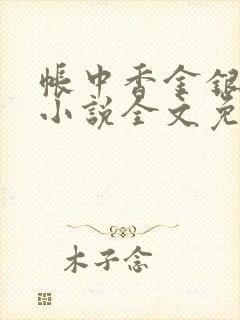 帐中香金银
小说全文免
木子念